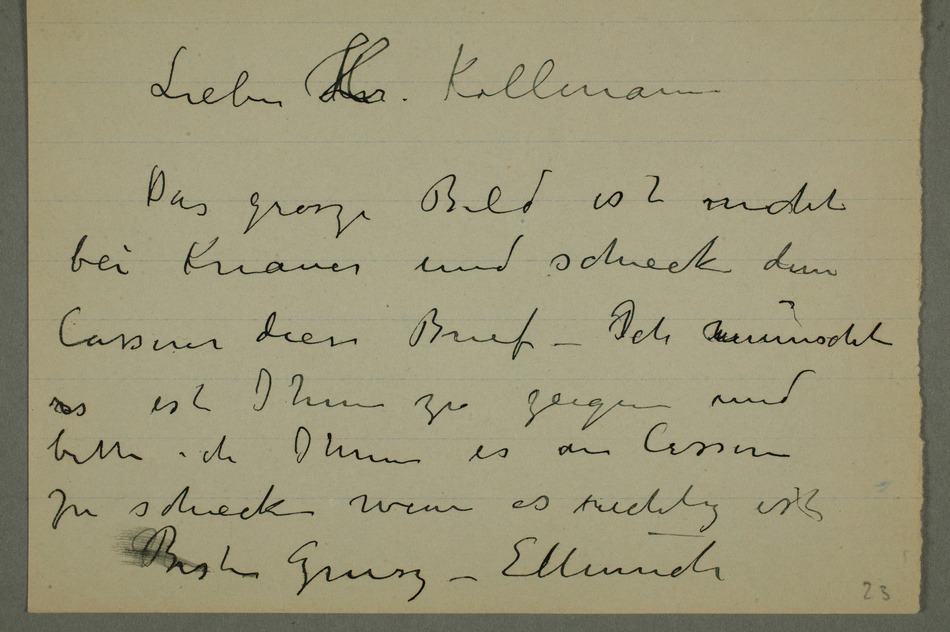 Lieber Hr. Kollmann
Das grosze Bild ist nicht
bei Knauer und schick dem
Cassirer diesen Brief – Ich wünscht
es ist Ihnen zu zeigen und
bitte ich Ihnen es an Cassirer
zu schicken wenn es richtig ist
Besten Grusz –
23